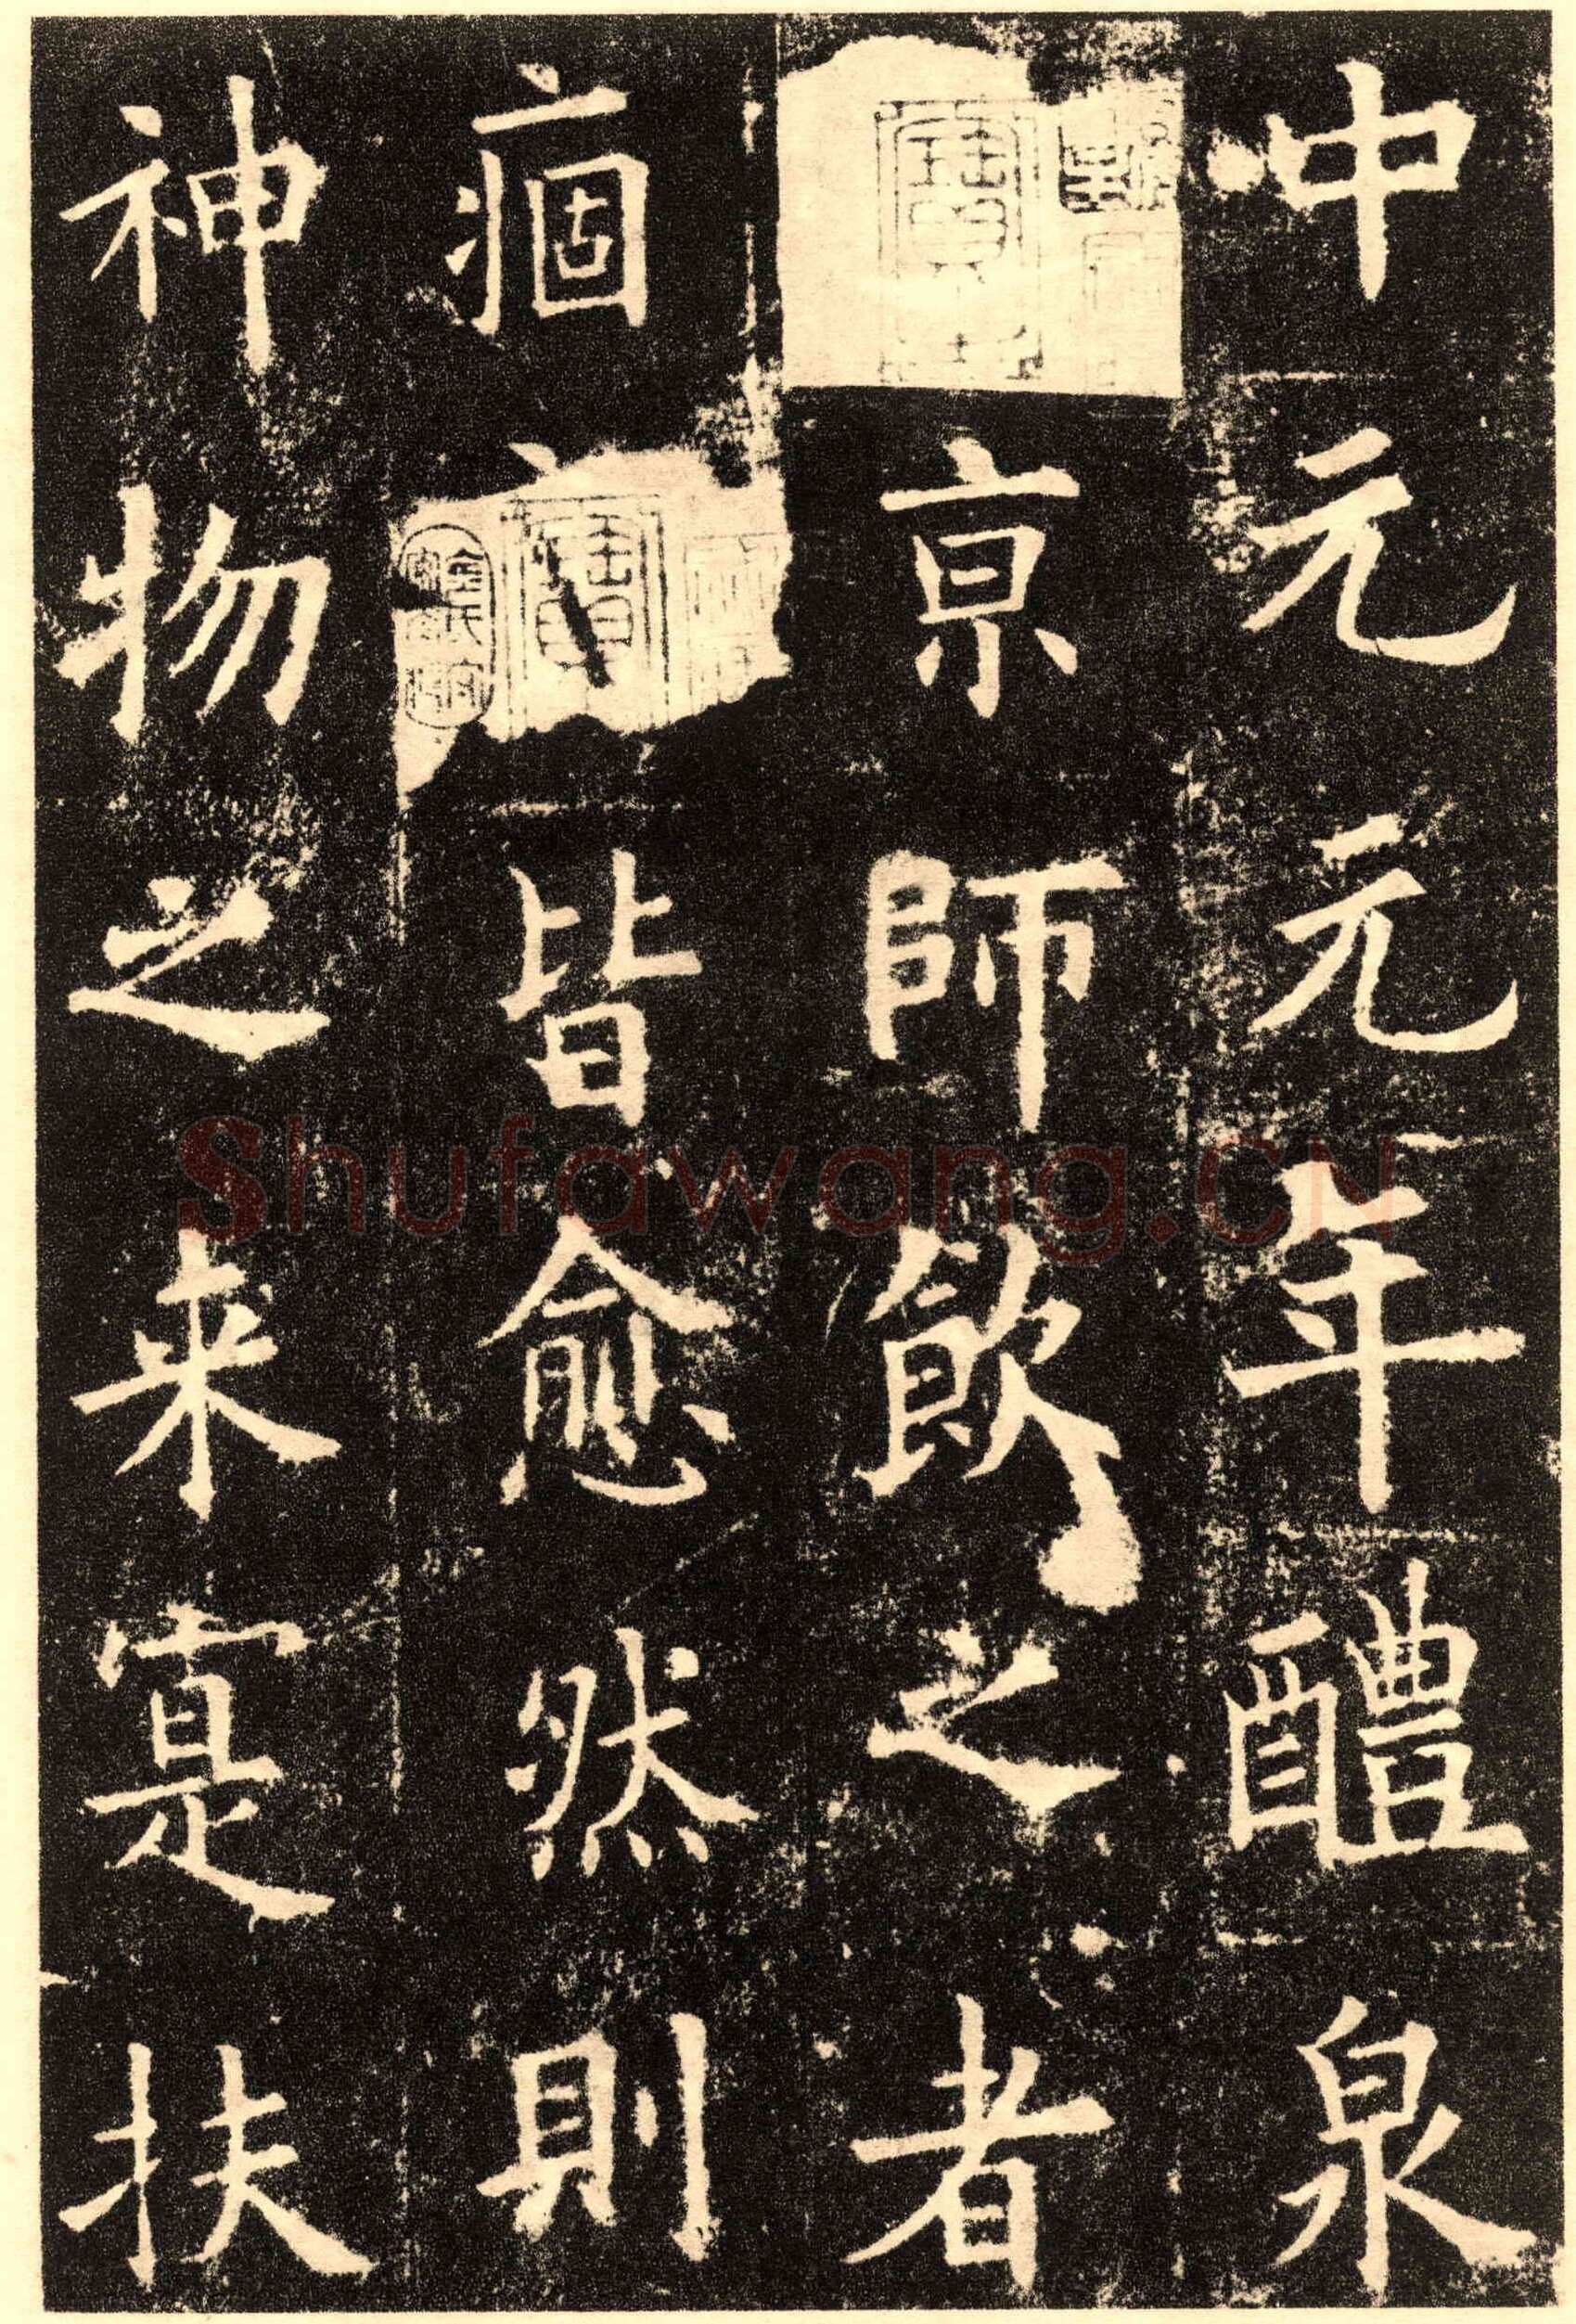 中元元年醴泉
京師飲之者
痼皆愈然則
神物之来寔扶
Shufawang.CN